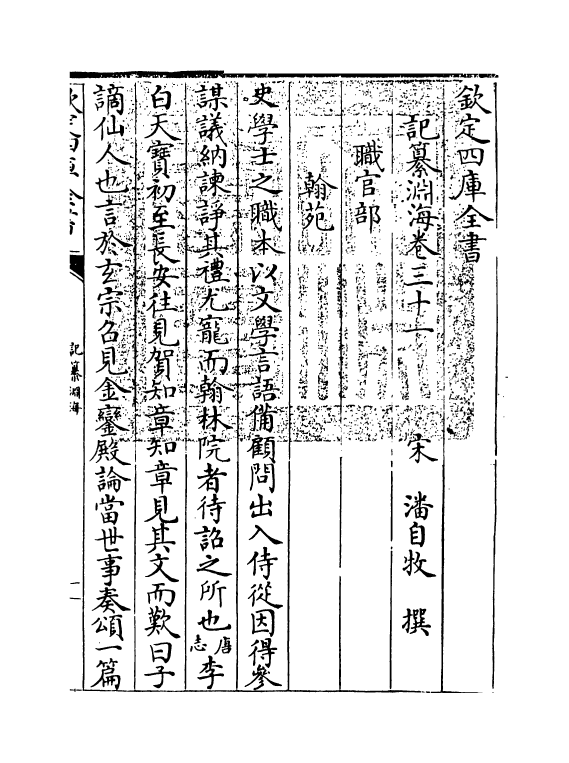 欽定四庫全書
記纂淵海卷三十一　宋　潘自牧　撰
職官部
翰苑
史學士之職本以文學言語備顧問出入侍從因得參
謀議納諫諍其禮尤寵而翰林院者待詔之所也唐志李
白天寶初至長安往見賀知章知章見其文而歎曰子
謫仙人也言於玄宗召見金鑾殿論當世事奏頌一篇
記纂淵海